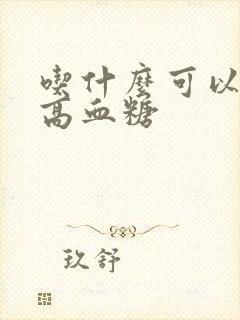 喫什麼可以
高血糖
玖舒